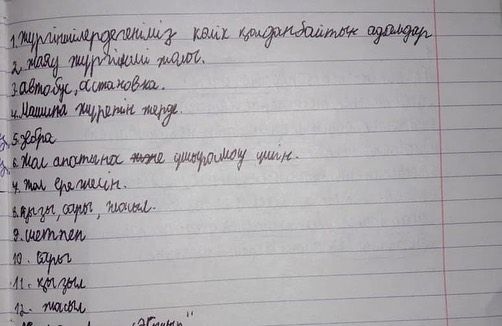 1. Жүргіншілердегеніміз көлік қолданбайтын адамдар
2. жаяу жүргінші жолы.
3. автобус, остановка.
4. Машина жүретін жерде.
5. зебра
6. Жол апатына ұшырамау үшін.
7. Жол ережесін.
8. қызы, сары, жасыл.
9. шетпен
10. сары
11. қызыл
12. жасыл